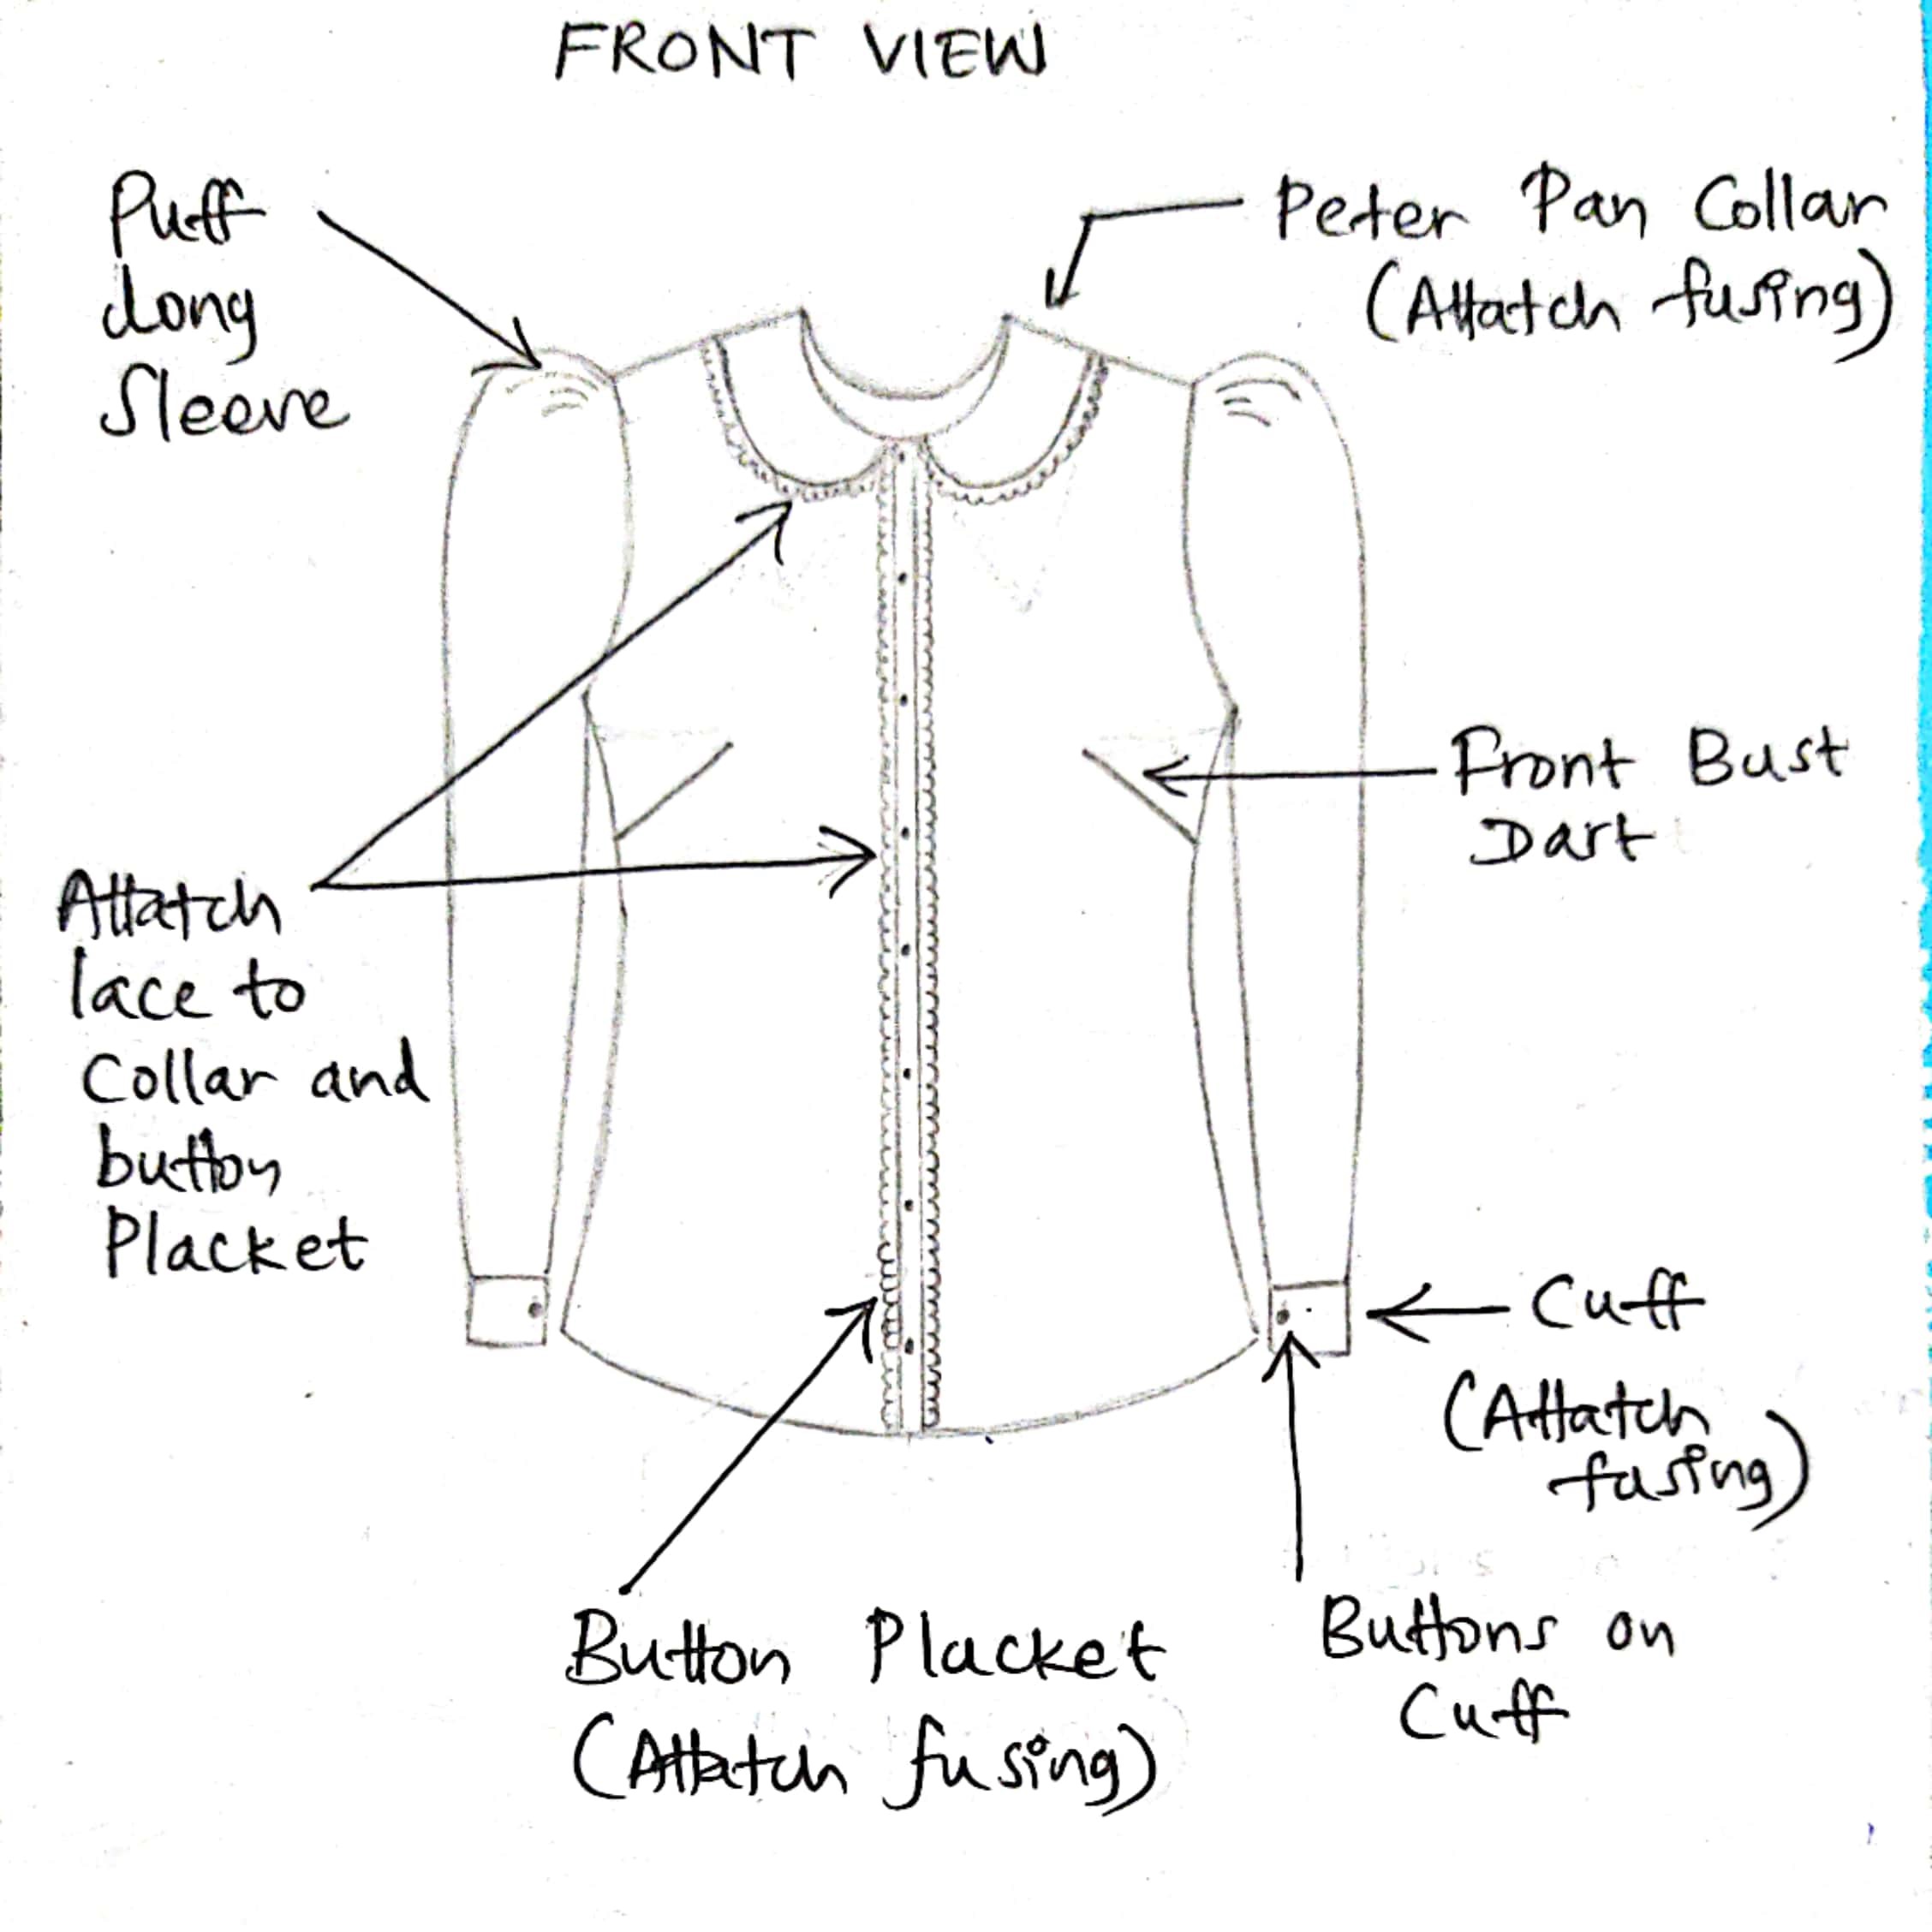 FRONT VIEW
Puff
Long
Sleeve
Peter Pan Collar
(Attatch fusing)
Front Bust
Dart
Attatch
lace to
Collar and
button
Placket
Cuff
(Attatch
fusing)
Button Placket
(Attatch fusing)
Buttons on
Cuff